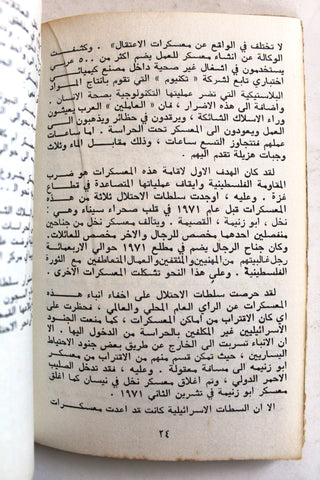 لا تختلف في الواقع عن معسكرات الاعتقال" . وكشفت
الوكالة عن انشاء معسكر للعمل يضم اكثر من ٥٠٠ عربي
يستخدمون في اشغال غير صحية داخل مصنع كيميائي
اختباري تابع لشركة « تكنيوم » التي تقوم بأنتاج المواد
البلاستيكية التي تضر عملياتها التكنولوجية بصحة الانسان .
واضافة الى هذه الاضرار ، فان « العاملين » العرب يعيشون
وراء الاسلاك الشائكة ، ويرقدون في حظائر ويذهبون الى
العمل ويعودون الى المعسكر تحت الحراسة . اما ساعات
عملهم فتتجاوز التسع ساعات ، وذلك مقابل الماء وثلاث
وجبات هزيلة تقدم اليهم .
لقد كان الهدف الاول لاقامة هذه المعسكرات هو ضرب
المقاومة الفلسطينية وايقاف عملياتها المتصاعدة في قطاع
غزة . وعليه ، اوجدت سلطات الاحتلال ثلاثة من هذه
المعسكرات قبل عام ١٩٧١ في قلب صحراء سيناء وهي :
نخل ، ابو زنيمة ، القصيمة . ويتألف معسكر نخل من جناحين
منفصلين احدهما مخصص للرجال والاخر مخصص للعائلات .
وكان جناح الرجال يضم في مطلع ١٩٧١ حوالي الاربعمائة
رجل غالبيتهم من المهنيين والمثقفين والعمال المتعاطفين مع الثورة
الفلسطينية . وعلى هذا النحو تشكلت المعسكرات الاخرى .
لقد حرصت سلطات الاحتلال على اخفاء انباء هذه
المعسكرات عن الرأي العام المحلي والعالمي ، فحظرت على
اي كان الاقتراب من اماكن المعسكرات ، كما منعت الجنود
الاسرائيليين غير المكلفين بالحراسة من الدخول اليها . الا
ان الانباء تسربت الى الخارج عن طريق بعض جنود الاحتياط
اليساريين ، حيث تمكن بعضهم من الاقتراب من معسكر
ابو زنيمة الى مسافة معقولة . وعليه ، فقد تدخل الصليب
الاحمر الدولي ، وتم اغلاق معسكر نخل في نيسان كما اغلق
معسكر ابو زنيمة في تشرين الثاني ١٩٧١ .
الا ان السلطات الاسرائيلية كانت قد اعدت معسكرات
٢٤